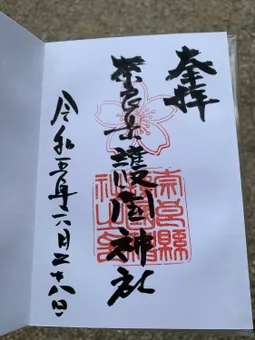 奉拝
奈良県護國神社
令和五年六月二十八日
奈良縣
護國神
社之印